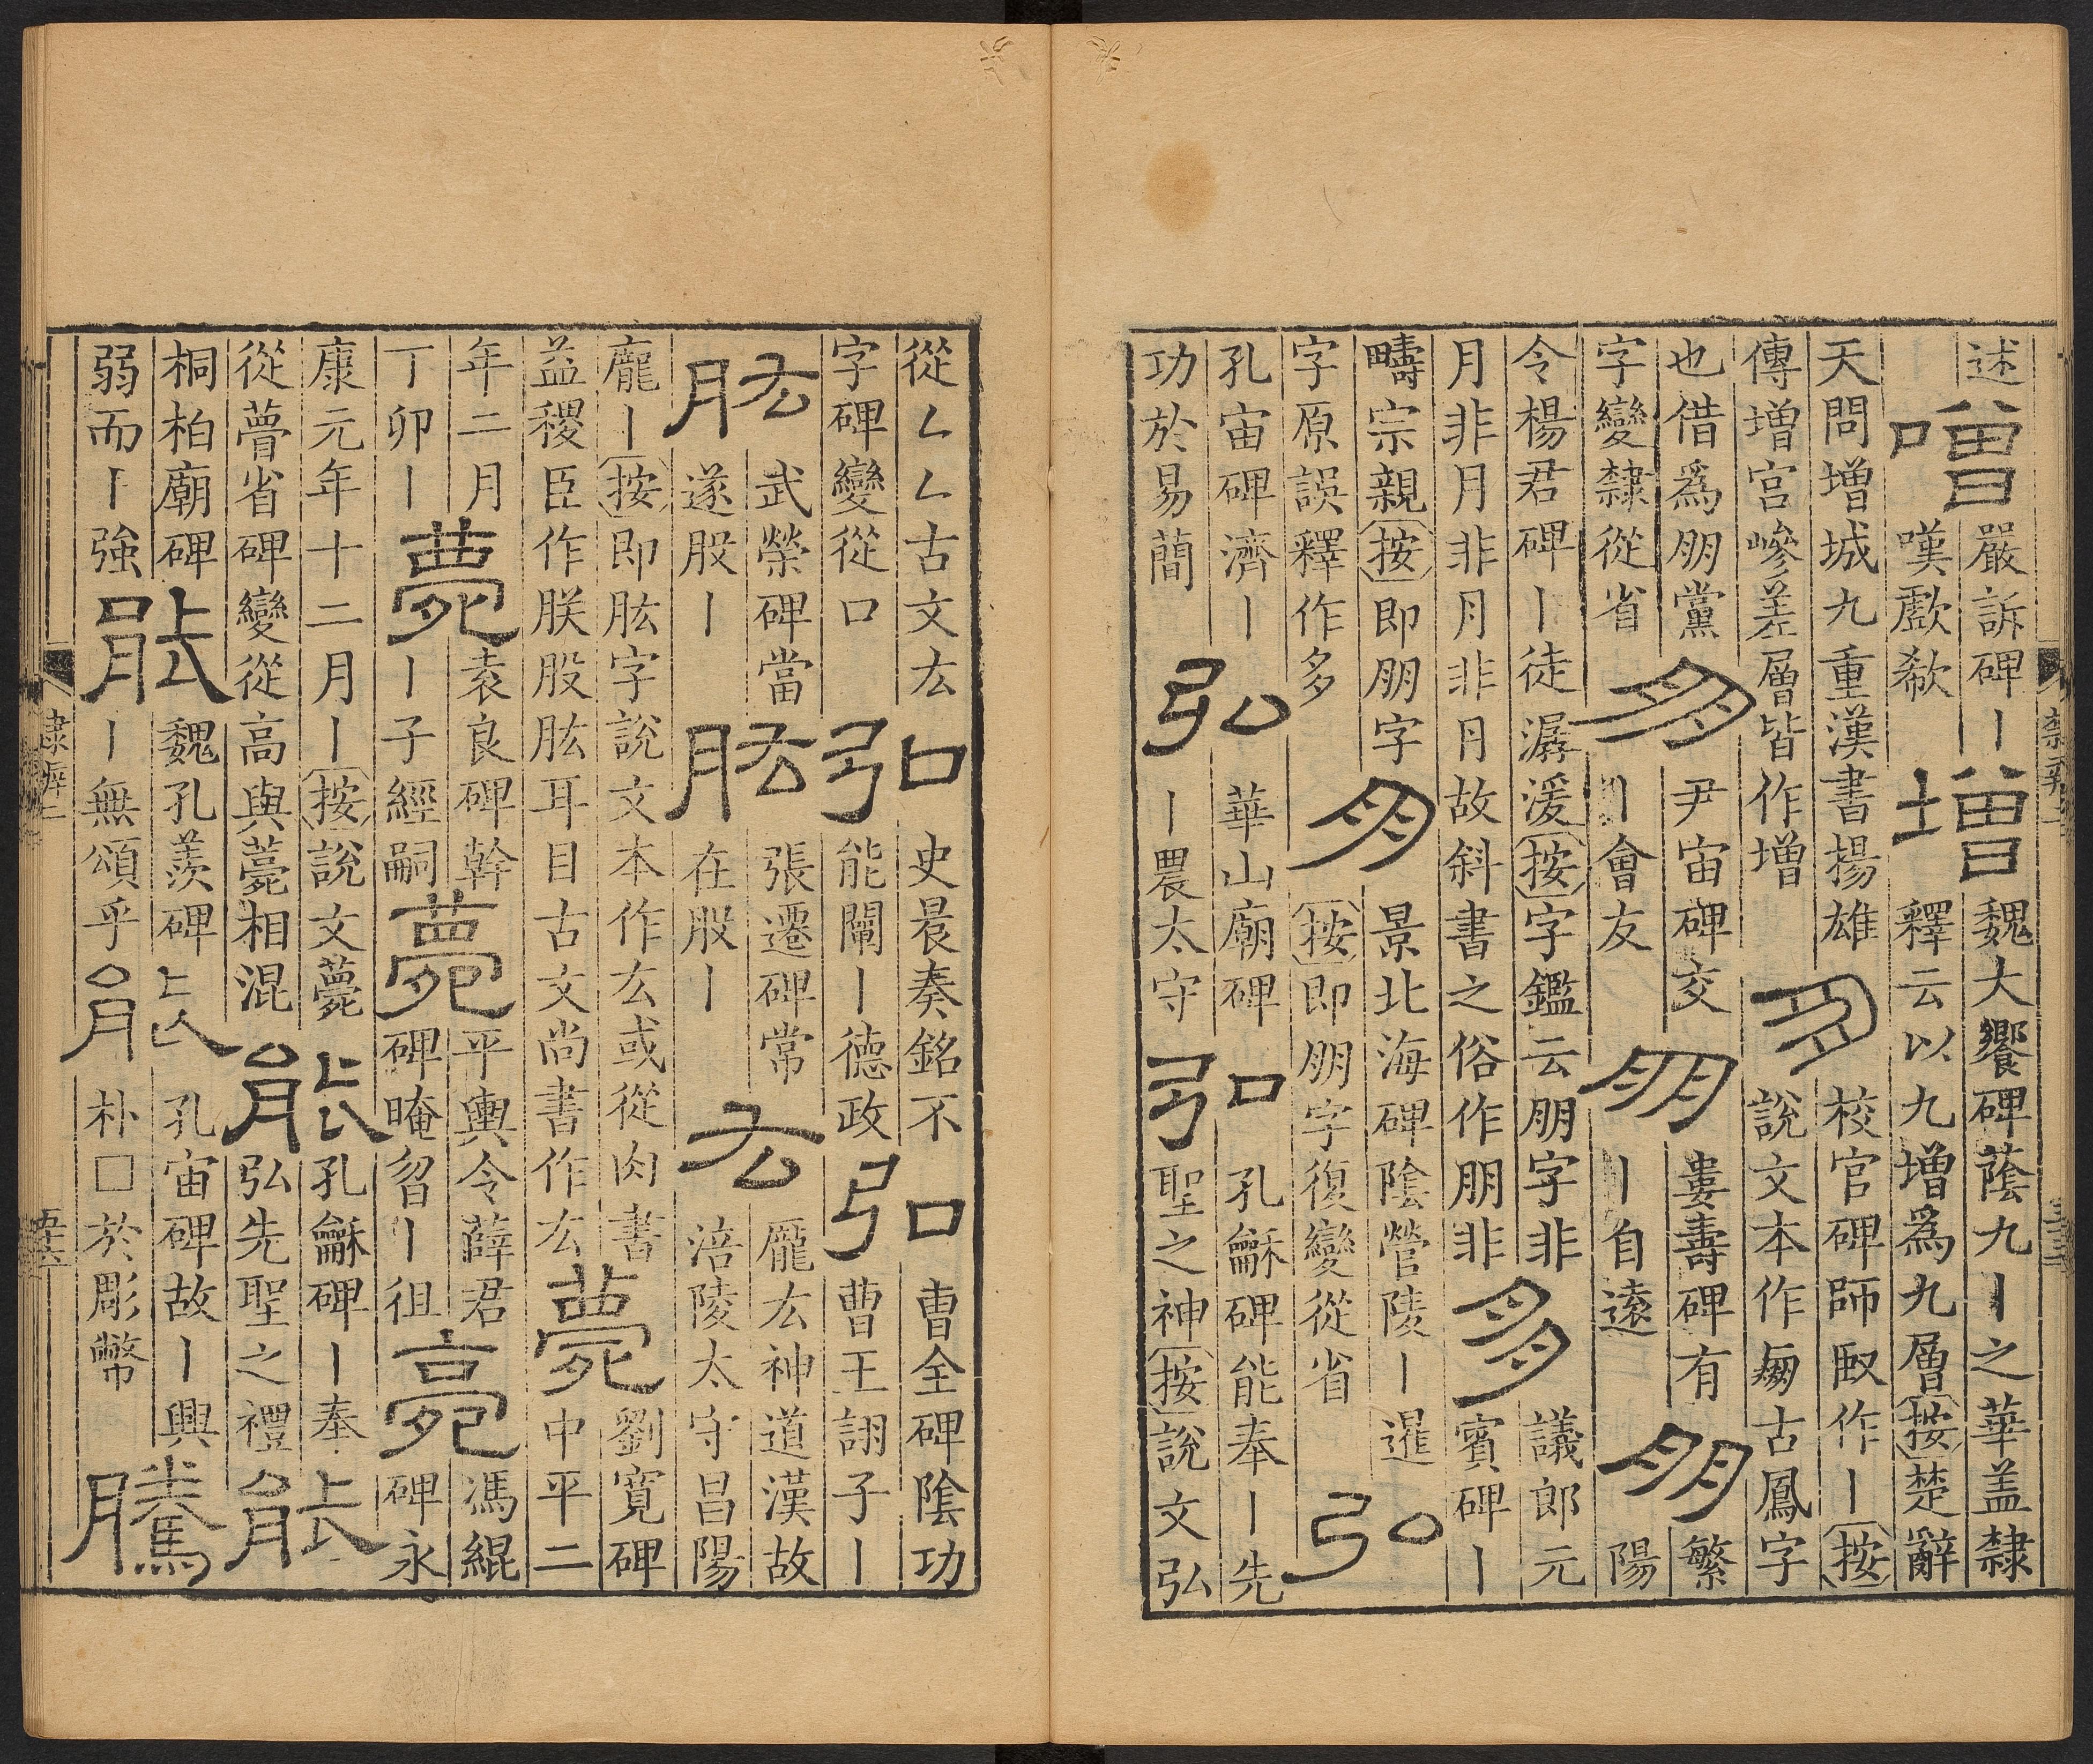 述
噌
嚴訴碑丨
嘆歔欷
增
魏大饗碑蔭九丨之華盖隸
釋云以九增爲九層按楚辭
天問增城九重漢書揚雄
傳增宮嵾差層皆作增
朋
校官碑師㕞作丨按
說文本作𦐧古鳳字
也借爲朋黨
字變隸從省
朋
尹宙碑交
丨會友
朋
婁壽碑有
丨自遠
朋
繁
陽
令楊君碑丨徒潺湲按字鑑云朋字非
月非月非月非月故斜書之俗作朋非
朋
議郎元
賓碑丨
疇宗親按即朋字
字原誤釋作多
朋
景北海碑陰營陵丨暹
按即朋字復變從省
弘
孔宙碑濟丨
功於易簡
弘
華山廟碑
丨農太守
弘
孔龢碑能奉丨先
聖之神按說文弘
從厶厶古文厷
字碑變從口
弘
史晨奏銘不
能闡丨德政
弘
曹全碑陰功
曹王詡子丨
肱
武榮碑當
遂股丨
肱
張遷碑常
在股丨
厷
龎厷神道漢故
涪陵太守昌陽
龎丨按即肱字說文本作厷或從肉書
益稷臣作朕股肱耳目古文尚書作厷
薨
劉寬碑
中平二
年二月
丁卯丨
薨
袁良碑幹
丨子經嗣
薨
平輿令薛君
碑晻曶丨徂
薨
馮緄
碑永
康元年十二月丨按說文薨
從瞢省碑變從高與薧相混
能
孔龢碑丨奉
弘先聖之禮
能
桐柏廟碑
弱而丨強
能
魏孔羨碑
丨無頌乎
能
孔宙碑故丨興
朴□於彫幣
騰